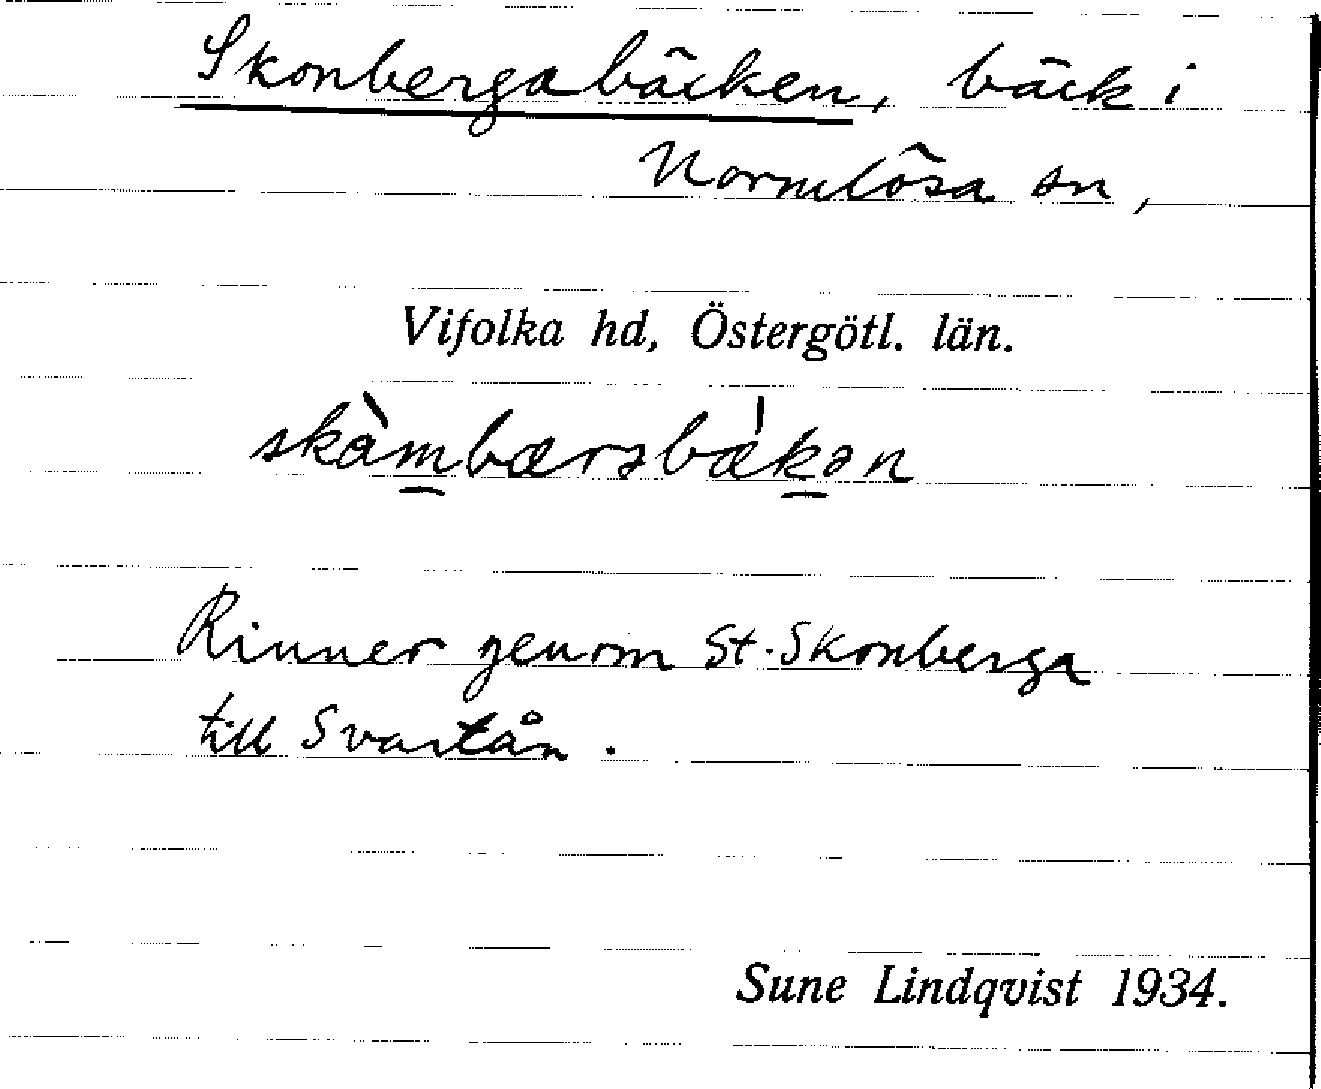 Skonbergabäcken, bäck i
Normlösa sn,
Vifolka hd, Östergötl. län.
skàm̲bærəbæ̍k̲ən
Rinner genom St. Skonberga
till Svartån.
Sune Lindqvist 1934.